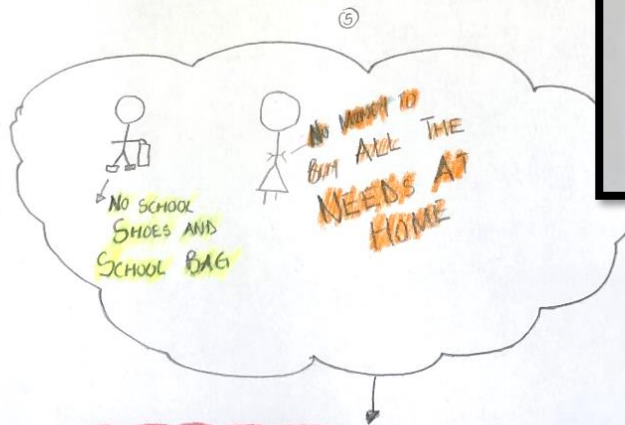 5
No SCHOOL
SHOES AND
SCHOOL BAG
No MONEY TO
BUY ALL THE
NEEDS AT
HOME